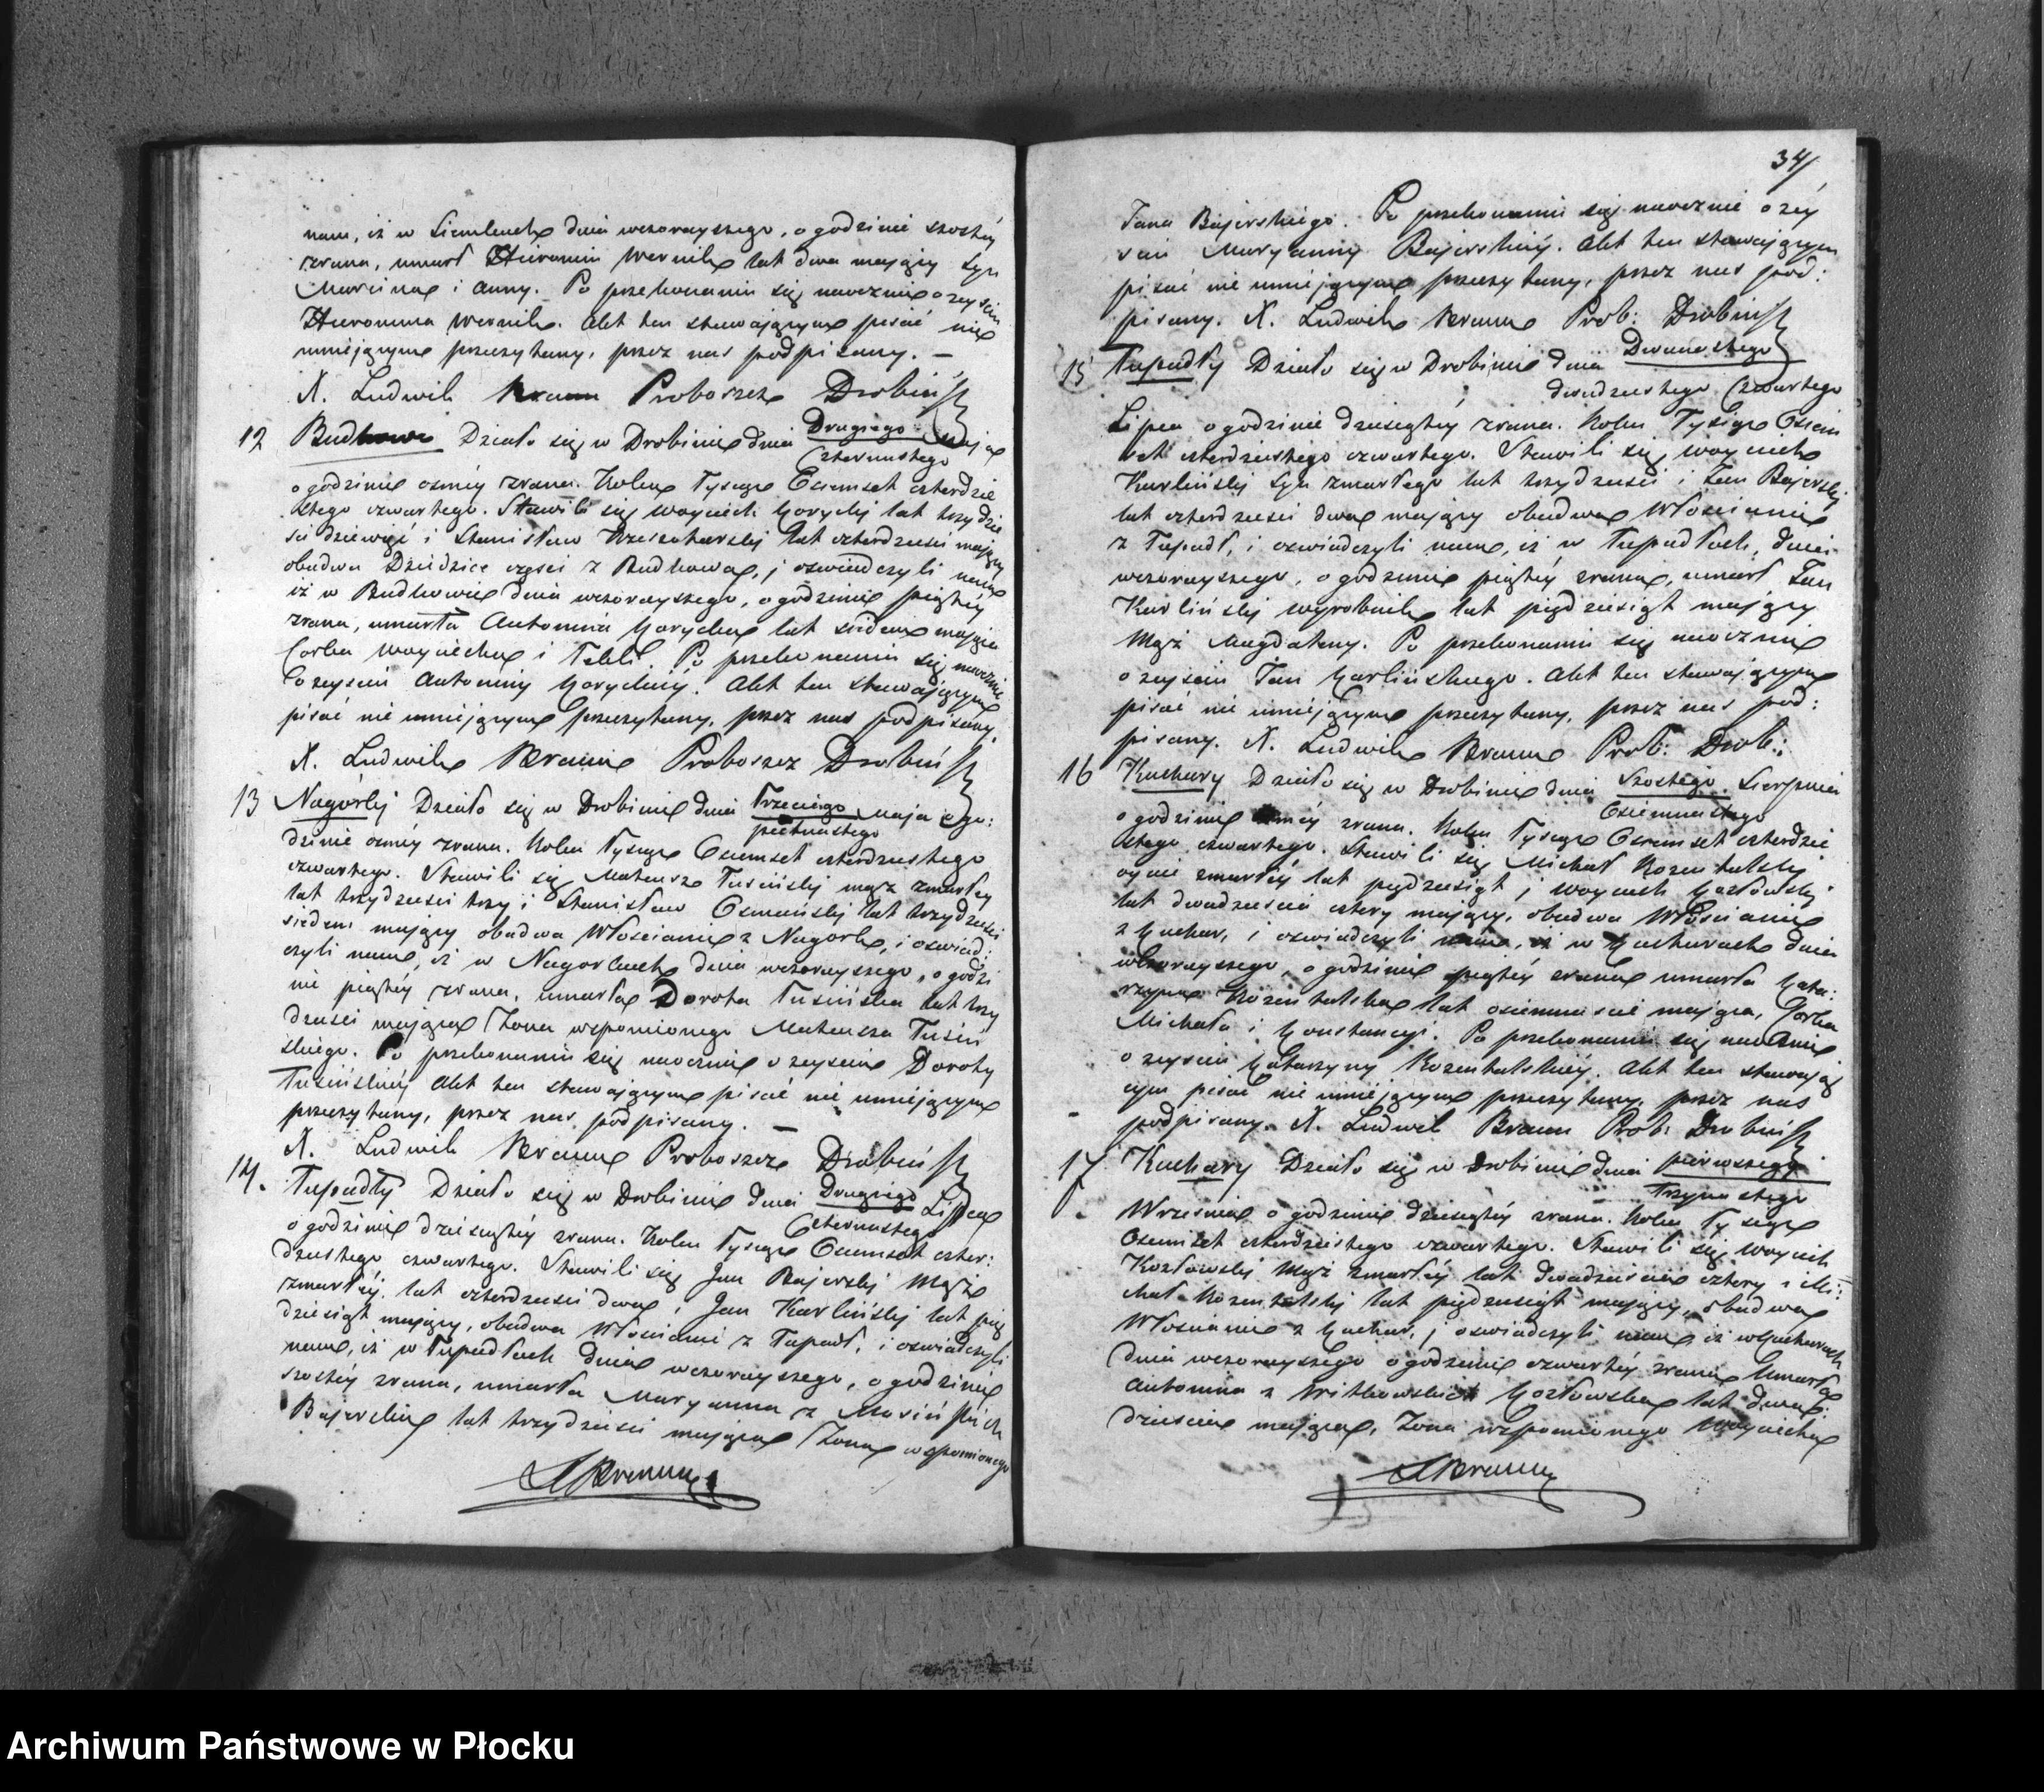 nam, iż w Siemluch dnia wczorayszego, o godzinie szostey
zrana, umarł Hieronim Wernik lat dwa maiący syn
Marcina i Anny. Po przekonaniu się naocznie o zeyściu
Hieronima Wernik. Akt ten stawaiącym pisać nie
umiejącym przeczytany, przez nas podpisany. —
X. Ludwik Braun Proboszcz Drobiń
12 Budkowo Działo się w Drobinie dnia Drugiego Maja
Czternastego
o godzinie osmey zrana. Roku Tysiąc Osiemset czterdzie
stego czwartego. Stawili się Woyciech Gorycki lat trzydzie
ści dziewięć i Stanisław lat czterdzieści maiący
obudwa Dziedzice części z Budkowa, i oświadczyli nam
iż w Budkowie dnia wczorayszego, o godzinie piątey
zrana, umarła Antonina Gorycka lat siedem maiąca
Corka Woyciecha i Tekli. Po przekonaniu się naocznie
o zeyściu Antoniny Goryckiey. Akt ten stawaiącym
pisać nie umiejącym przeczytany, przez nas podpisany.
X. Ludwik Braun Proboszcz Drobiń
13 Nagorki Działo się w Drobinie dnia Trzeciego Maja o go:
pietnastego
dzinie osmey zrana. Roku Tysiąc Osiemset czterdziestego
czwartego. Stawili się Mateusz Tusiński mąż zmarłey
lat trzydzieści trzy i Stanisław Osmański lat trzydzieści
siedem maiący obudwa Włościanie z Nagorek, i oświad:
czyli nam, iż w Nagorkach dnia wczorayszego, o godzi
nie piątey zrana, umarła Dorota Tusińska lat trzy
dzieści maiąca Żona wspomionego Mateusza Tusiń
skiego. Po przekonaniu się naocznie o zeyściu Doroty
Tusińskiey Akt ten stawaiącym pisać nie umiejącym
przeczytany, przez nas podpisany. —
X. Ludwik Braun Proboszcz Drobiń
14. Tupadły Działo się w Drobinie dnia Drugiego Lipca
Czternastego
o godzinie dziesiątey zrana. Roku Tysiąc Osiemset czter:
dziestego czwartego. Stawili się Jan Bajerski Mąż
zmarłey, lat czterdzieści dwa, i Jan Karliński lat pię
dziesiąt maiący, obudwa Włościanie z Tupadł, i oświadczyli
nam, iż w Tupadłach dnia wczorayszego, o godzinie
szostey zrana, umarła Maryanna z Mosińskich
Bajerska lat trzydzieści maiąca Żona wspomionego
LBraun
34/
Jana Bajerskiego. Po przekonaniu się naocznie o zey
ściu Maryanny Bajerskiey. Akt ten stawaiącym
pisać nie umiejącym przeczytany, przez nas pod:
pisany. X. Ludwik Braun Prob: Drobiń
15 Tupadły Działo się w Drobinie dnia Dwunastego
dwudziestego Czwartego
Lipca o godzinie dziesiątey zrana. Roku Tysiąc Osiem
set czterdziestego czwartego. Stawili się Woyciech
Karliński syn zmarłego lat trzydzieści i Jan Bajerski
lat czterdzieści dwa maiący obudwa Włościanie
z Tupadł, i oświadczyli nam, iż w Tupadłach, dnia
wczorayszego, o godzinie piątey zrana, umarł Jan
Karliński wyrobnik lat piędziesiąt maiący
Mąż Magdaleny. Po przekonaniu się naocznie
o zeyściu Jan Karlińskiego. Akt ten stawaiącym
pisać nie umiejącym przeczytany, przez nas pod:
pisany. X. Ludwik Braun Prob: Drob:
16 Kuchary Działo się w Drobinie dnia Szostego Sierpnia
Osiemnastego
o godzinie osmey zrana. Roku Tysiąc Osiemset czterdzie
stego czwartego. Stawili się Michał Rozentalski
oyciec zmarłey lat piędziesiąt i Woyciech Kozłowski
lat dwadzieścia cztery maiący, obudwa Włościanie
z Kuchar, i oświadczyli nam, iż w Kucharach dnia
wczorayszego, o godzinie piątey zrana umarła Kata:
rzyna Rozentalska lat osiemnaście maiąca, Corka
Michała i Konstancyi. Po przekonaniu się naocznie
o zeyściu Katarzyny Rozentalskiey. Akt ten stawaią
cym pisać nie umiejącym przeczytany, przez nas
podpisany. X. Ludwik Braun Prob: Drobiń
17 Kuchary Działo się w Drobinie dnia pierwszego
Trzynastego
Wrzesnia o godzinie dziesiątey zrana. Roku Tysiąc
Osiemset czterdziestego czwartego. Stawili się Woyciech
Kozłowski Mąż zmarłey lat dwadzieścia cztery i Mi:
chał Rozentalski lat piędziesiąt maiący, obudwa
Włościanie z Kuchar, i oświadczyli nam, iż w Kucharach
dnia wczorayszego o godzinie czwartey zrana Umarła
Antonina z Witkowskich Kozłowska lat dwa:
dzieścia maiąca, Żona wspomionego Woyciecha
LBraun
Archiwum Państwowe w Płocku